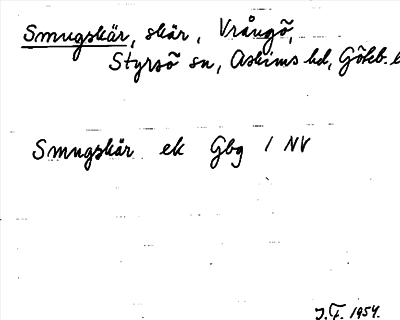 Smugskär, skär, Vrångö,
Styrsö sn, Askims hd, Göteb.
Smugskär ek Gbg 1 NV
J.F. 1954.